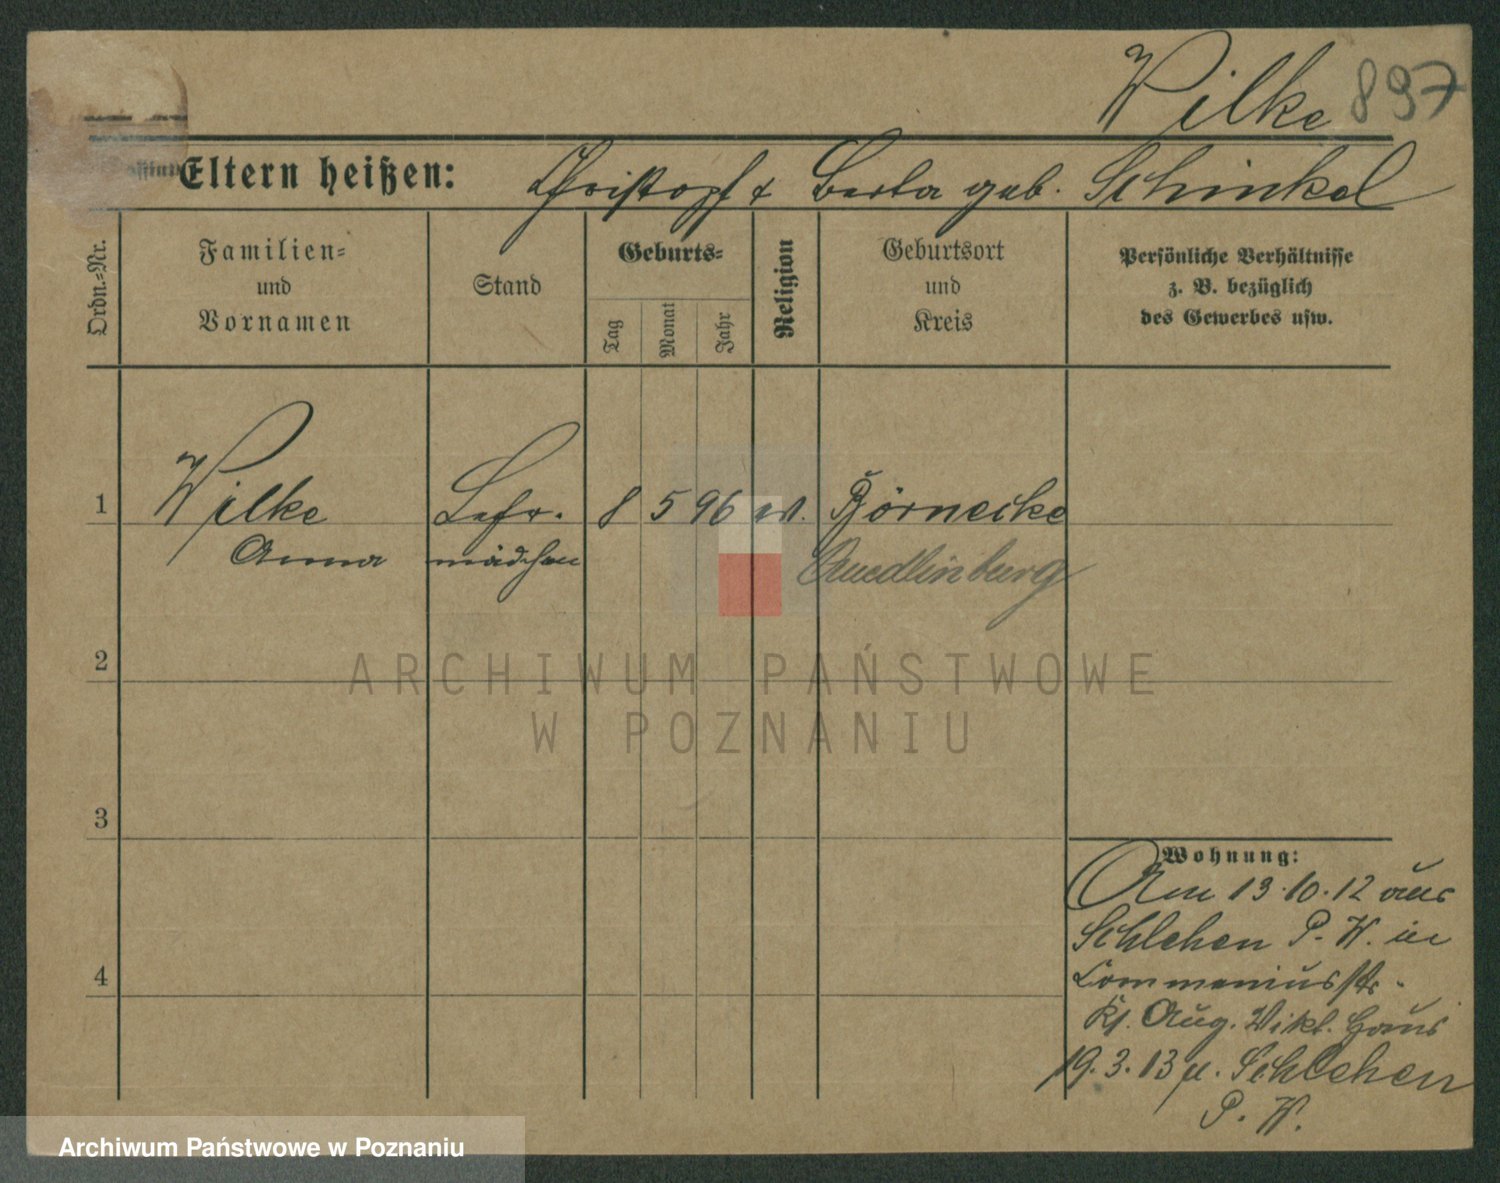 Wilke 897
Eltern heißen: Christoph & Berta geb. Schinkel
Ordn.-Nr.
Familien-
und
Vornamen
Stand
Geburts-
Tag
Monat
Jahr
Religion
Geburtsort
und
Kreis
Persönliche Verhältnisse
z. B. bezüglich
des Gewerbes usw.
1 Wilke Lehr- 8 5 96 ev. Börnecke
Anna mädchen Quedlinburg
2
ARCHIWUM PAŃSTWOWE
W POZNANIU
3
4
Wohnung:
Am 13.10.12 aus
Schlehen P. W. in
Commeniusstr.
Aug. Vikt. Haus
19.3.13 n. Schlehen
P. W.
Archiwum Państwowe w Poznaniu